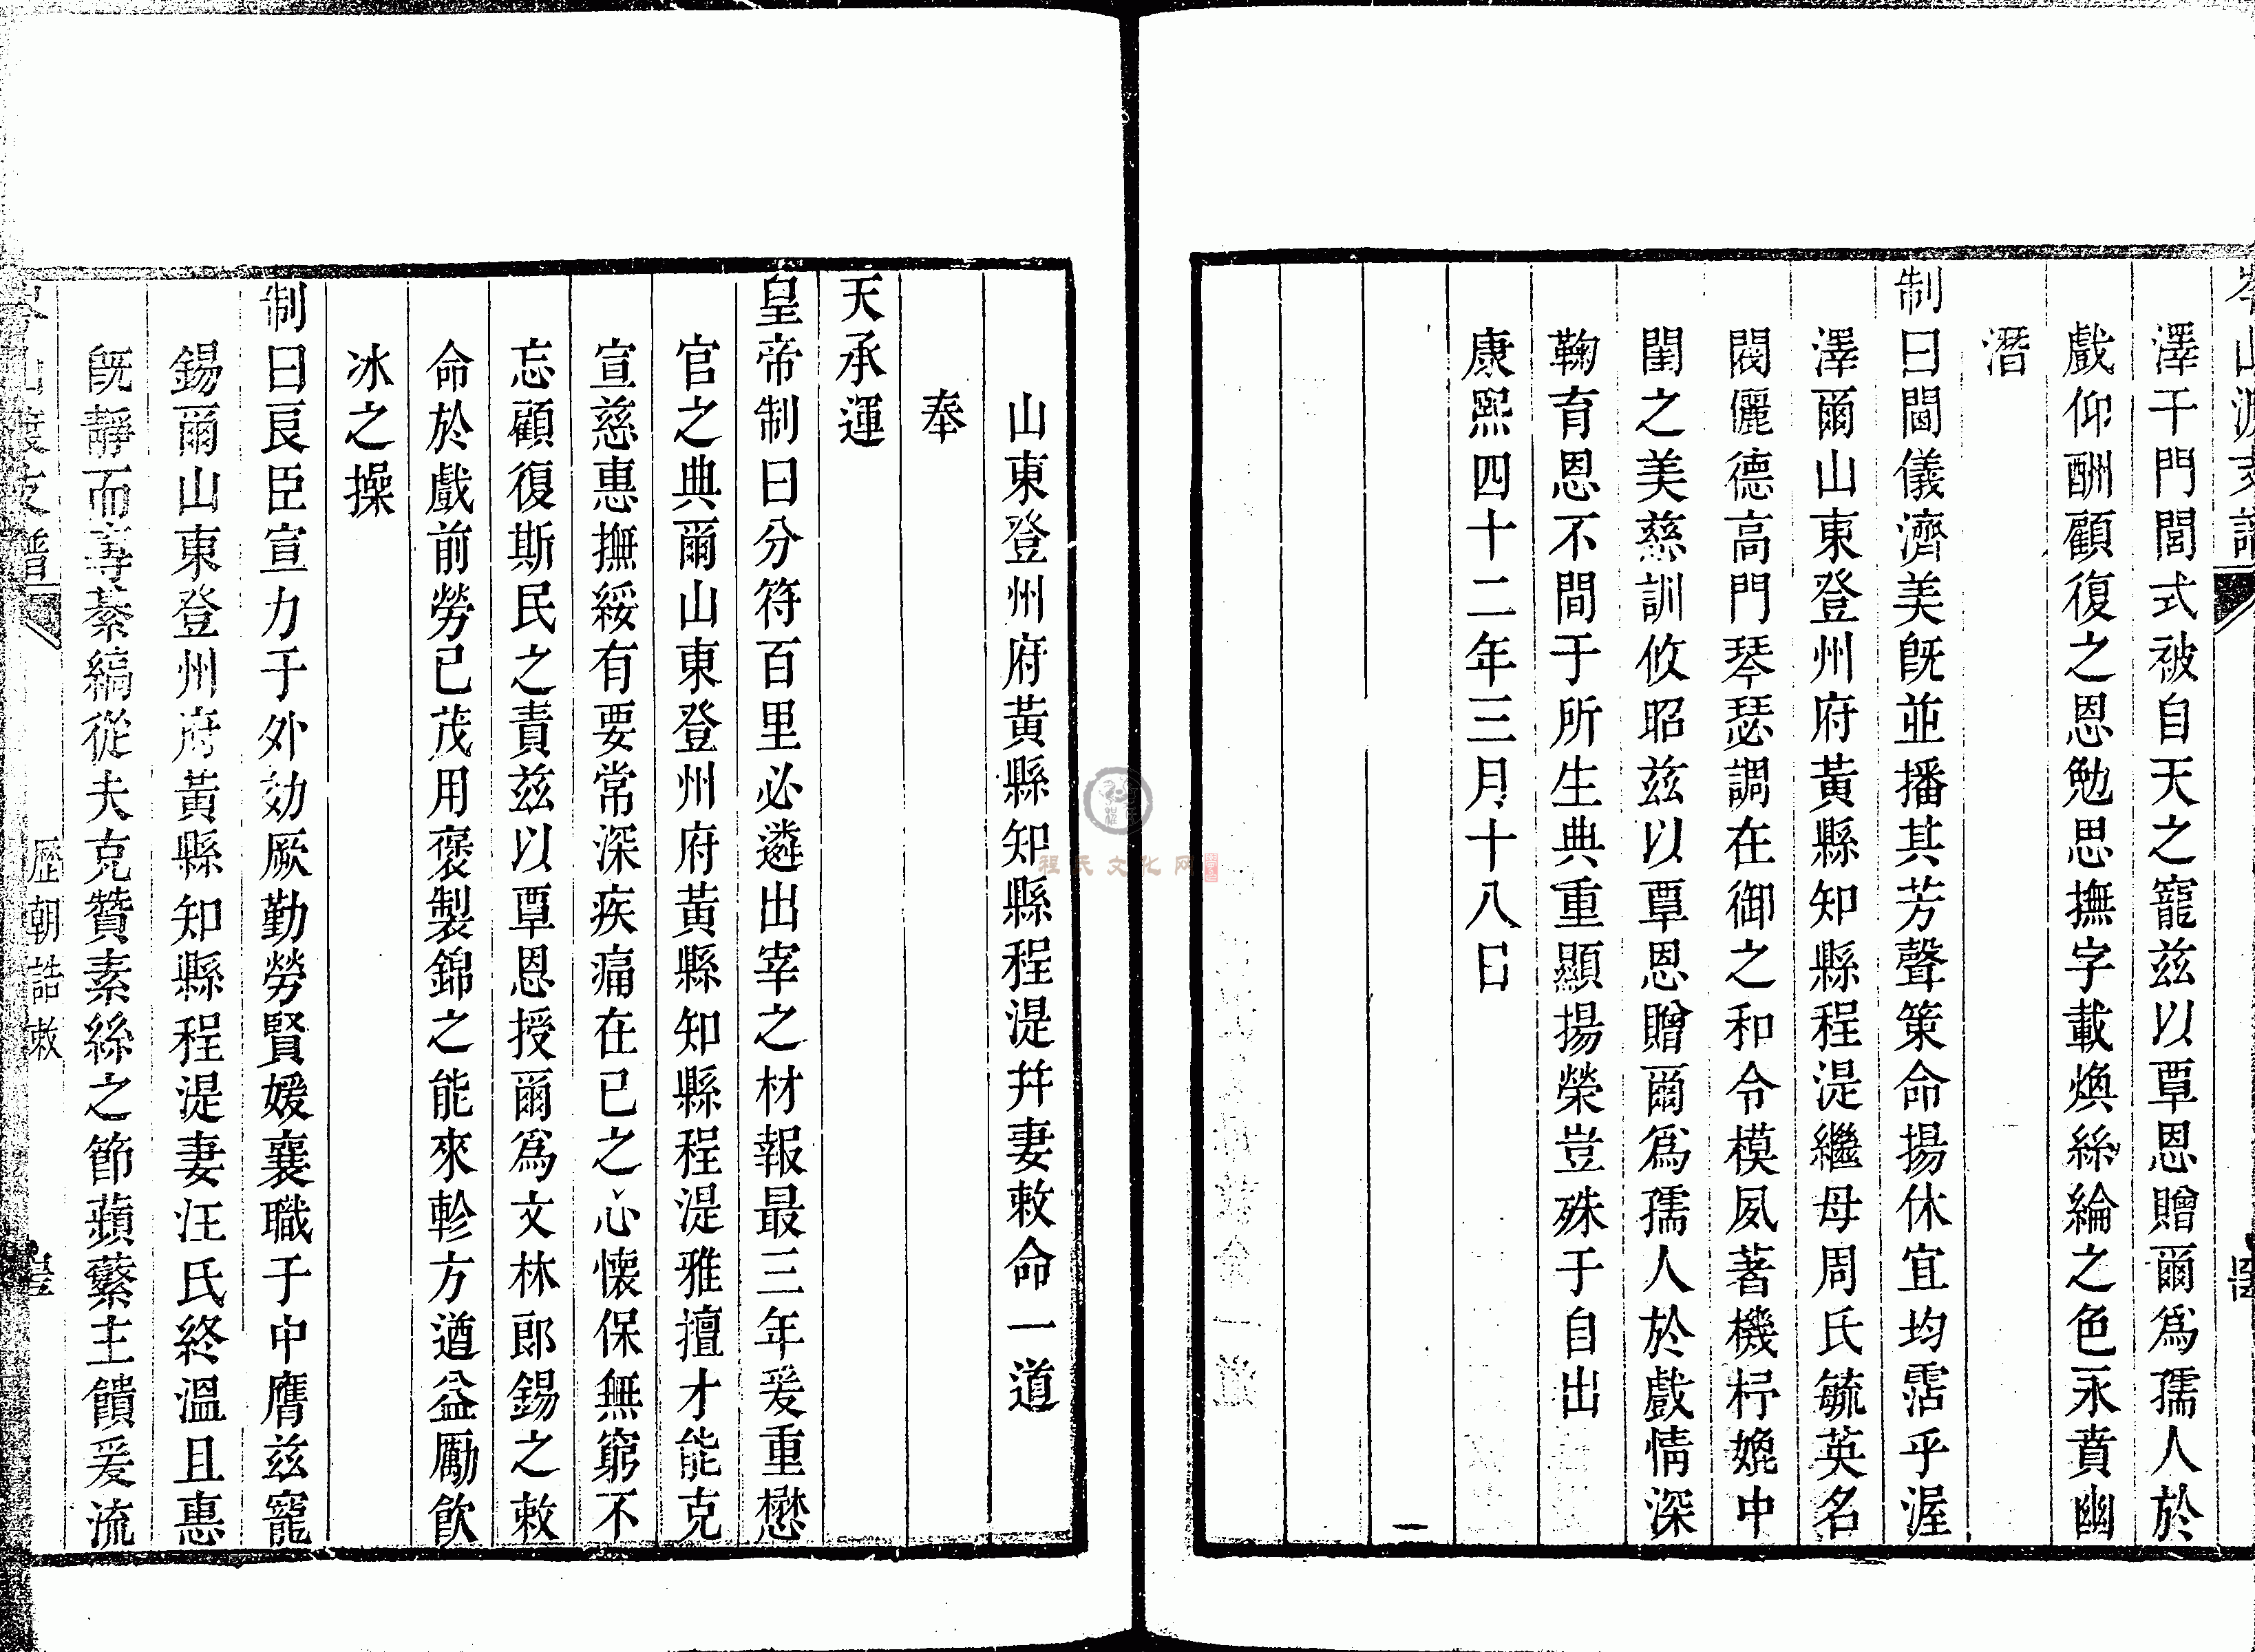 澤于門閭式被自天之寵茲以覃恩贈爾爲孺人於
戲仰酬顧復之恩勉思撫字載煥絲綸之色永賁幽
潛
制曰閫儀濟美旣並播其芳聲策命揚休宜均霑乎渥
澤爾山東登州府黃縣知縣程湜繼母周氏毓英名
閥儷德高門琴瑟調在御之和令模夙著機杼媲中
閨之美慈訓攸昭茲以覃恩贈爾爲孺人於戲情深
鞠育恩不間于所生典重顯揚榮豈殊于自出
康熙四十二年三月十八日
山東登州府黃縣知縣程湜幷妻敕命一道
奉
天承運
皇帝制曰分符百里必遴出宰之材報最三年爰重懋
官之典爾山東登州府黃縣知縣程湜雅擅才能克
宣慈惠撫綏有要常深疾痛在已之心懷保無窮不
忘顧復斯民之責茲以覃恩授爾爲文林郎錫之敕
命於戲前勞已茂用褒製錦之能來軫方遒益勵飮
冰之操
制曰良臣宣力于外効厥勤勞賢媛襄職于中膺茲寵
錫爾山東登州府黃縣知縣程湜妻汪氏終溫且惠
旣靜而專綦縞從夫克贊素絲之節蘋蘩主饋爰流
歷朝誥敕
程氏文化网